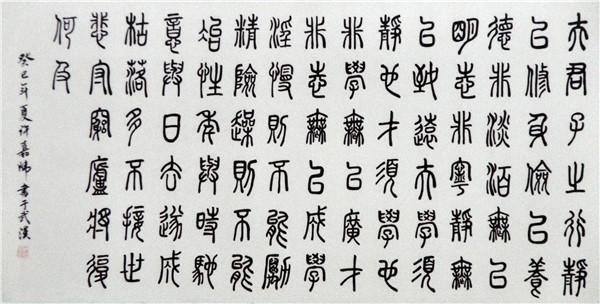 夫君子之行靜
以修身儉以養
德非淡泊無以
明志非寧靜無
以致遠夫學須
靜也才須學也
非學無以廣才
非志無以成學
淫慢則不能勵
精險躁則不能
冶性年與時馳
意與日去遂成
枯落多不接世
悲守窮廬將復
何及
癸巳年夏许嘉書于武漢